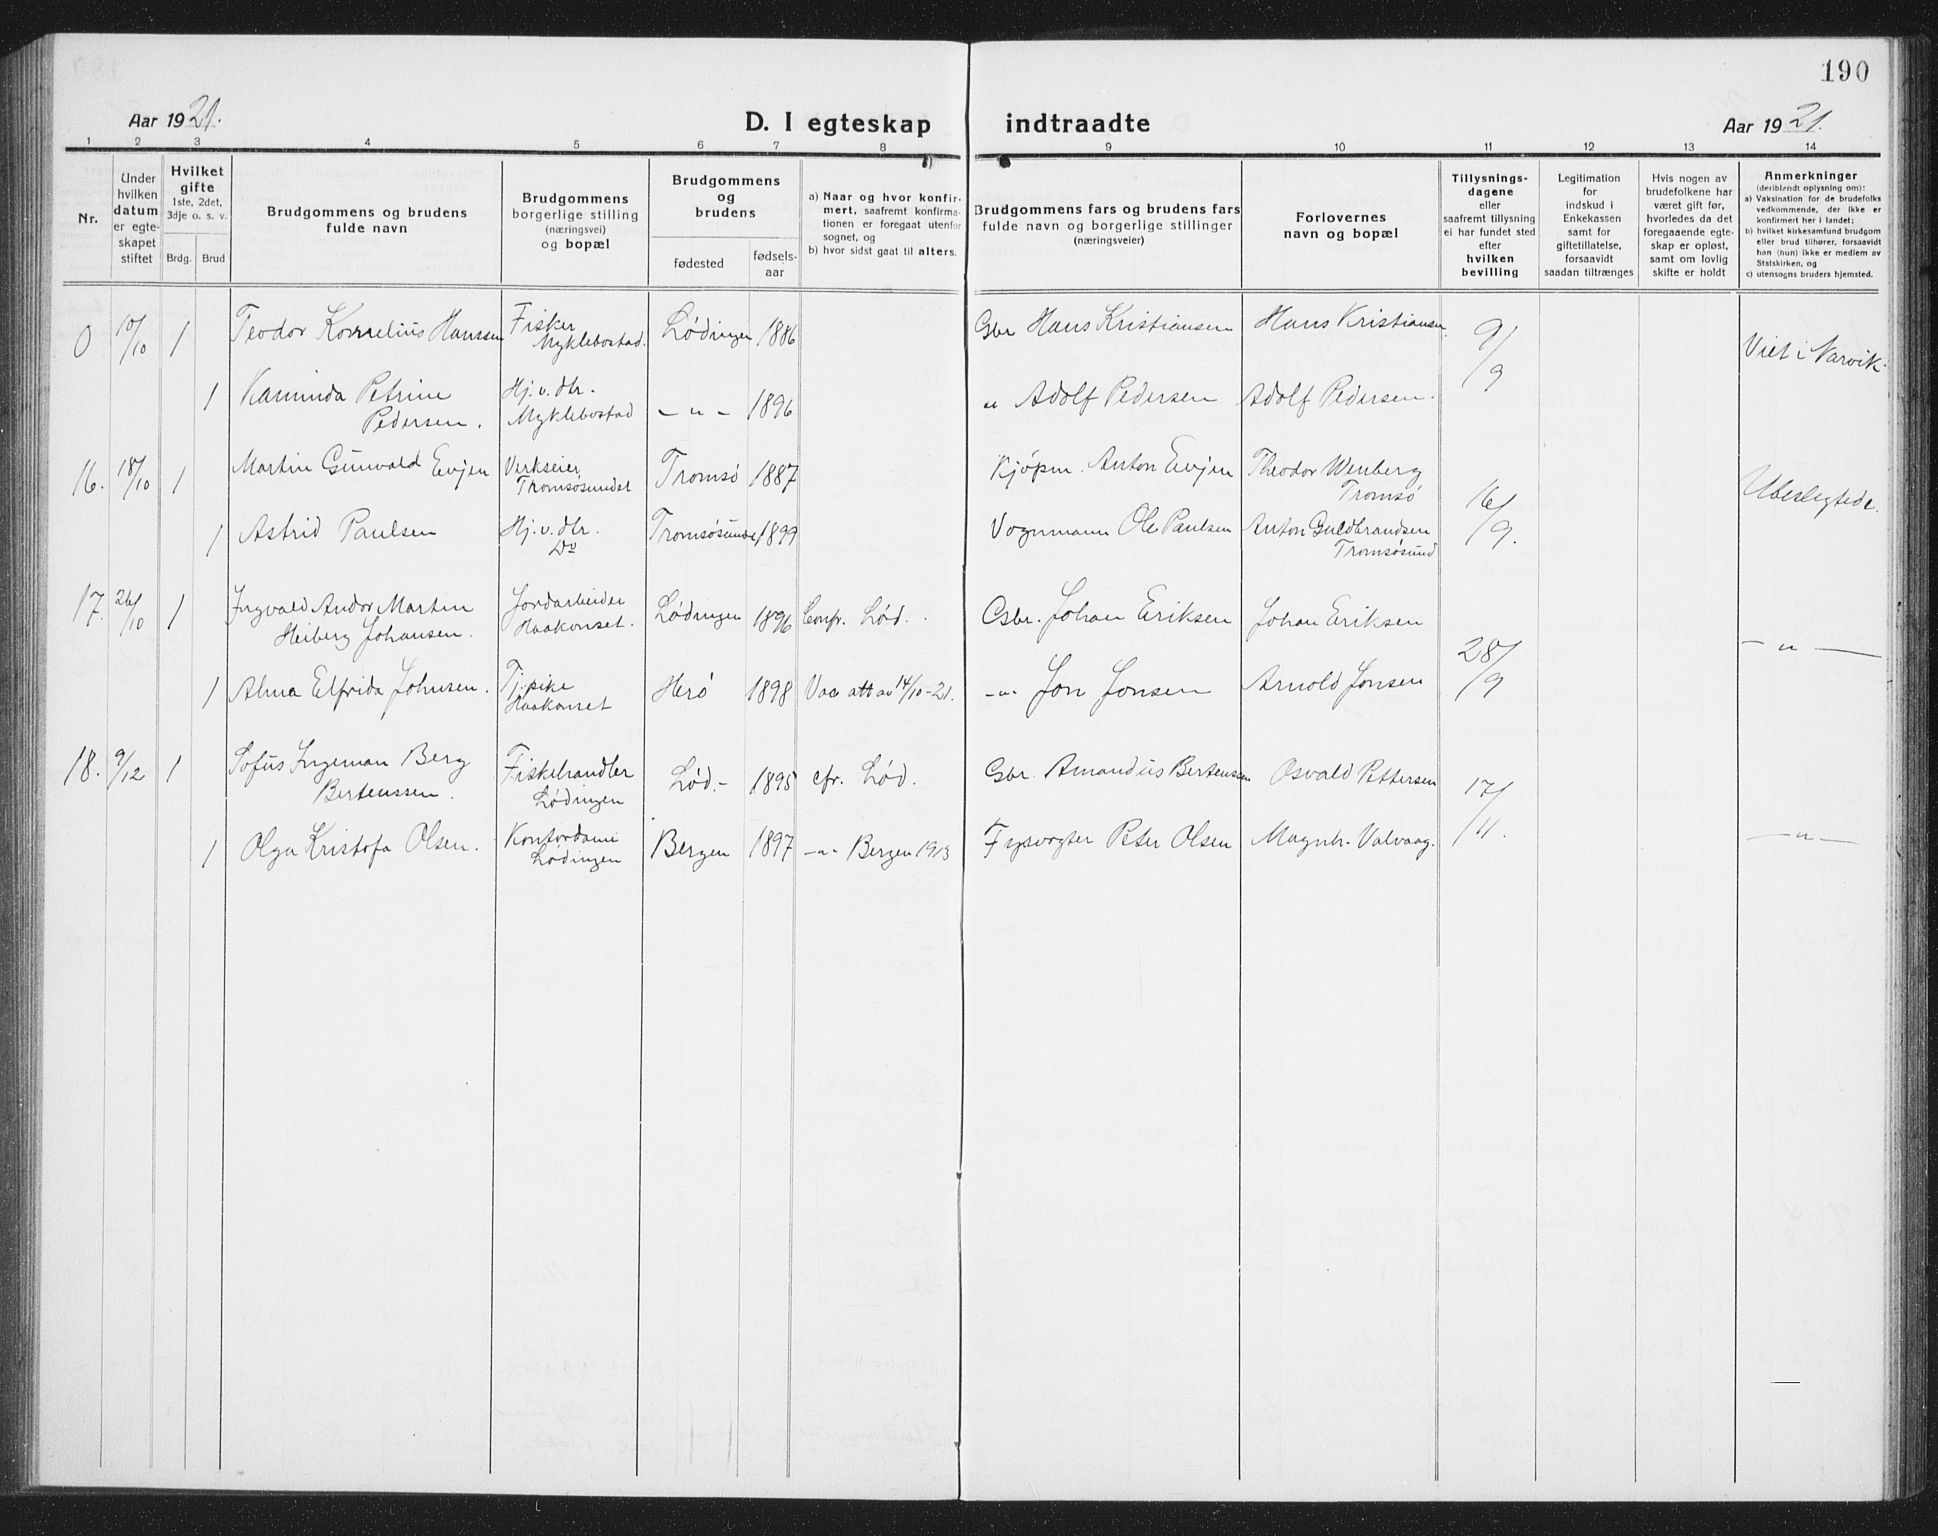 190
Aar 1921.
D. I egteskap indtraadte
Aar 1921.
1 2 3 4 5 6 7 8 9 10 11 12 13 14
Nr.
Under
hvilken
datum
er egte-
skapet
stiftet
Hvilket
gifte
1ste, 2det,
3dje o. s. v.
Brdg. Brud
Brudgommens og brudens
fulde navn
Brudgommens
borgerlige stilling
(næringsvei)
og bopæl
Brudgommens
og
brudens
fødested
fødsels-
aar
a) Naar og hvor konfir-
mert, saafremt konfirma-
tionen er foregaat utenfor
sognet, og
b) hvor sidst gaat til alters.
Brudgommens fars og brudens fars
fulde navn og borgerlige stillinger
(næringsveier)
Forlovernes
navn og bopæl
Tillysnings-
dagene
eller
saafremt tillysning
ei har fundet sted
efter
hvilken
bevilling
Legitimation
for
indskud i
Enkekassen
samt for
giftetillatelse,
forsaavidt
saadan tiltrænges
Hvis nogen av
brudefolkene har
været gift før,
hvorledes da det
foregaaende egte-
skap er opløst,
samt om lovlig
skifte er holdt
Anmerkninger
(deriblendt oplysning om):
a) Vaksination for de brudefolks
vedkommende, der ikke er
konfirmert her i landet;
b) hvilket kirkesamfund brudgom
eller brud tilhører, forsaavidt
han (hun) ikke er medlem av
Statskirken, og
c) utensogns bruders hjemsted.
0 10/10 1 Teodor Kornelius Hanssen Fisker Myklebostad. Lødingen 1886 Gbr Hans Kristiansen Hans Kristiansen 9/9 Viet i Narvik.
1 Kaminda Petrine Pedersen. Hj. v. dtr. Myklebostad - " - 1896 " Adolf Pedersen Adolf Pedersen.
16. 18/10 1 Martin Gunvald Evjen Verkseier Tromsøsundet Tromsø 1887 Kjøpm. Anton Evjen Theodor Wenberg Tromsø 16/9. Ubeslegtede.
1 Astrid Paulsen Hj. v. dtr. Do Tromsøsundet 1899 Vognmann Ole Paulsen Anton Guldbrandsen Tromsøsund
17. 26/10 1 Ingvald Andor Martin Heiberg Johansen. Jordarbeider Haakonset. Lødingen 1896 Confr. Lød. Gsbr. Johan Eriksen Johan Eriksen 28/9 - " -
1 Alma Elfrida Johnsen. Tj. pike Haakonset Herø 1898 Vac att av 14/10-21. -"- Jon Jonsen Arnold Jonsen
18. 9/12 1 Sofus Ingeman Berg Bertenssen. Fiskehandler Lødingen Lød.- 1895 cfr. Lød. Gsbr. Amandus Bertenssen Osvald Pettersen 17/11. - " -
1 Olga Kristofa Olsen. Kontordame Lødingen Bergen 1897 -"- Bergen 1913 Fyrvogter Peter Olsen Magnh. Valvaag.